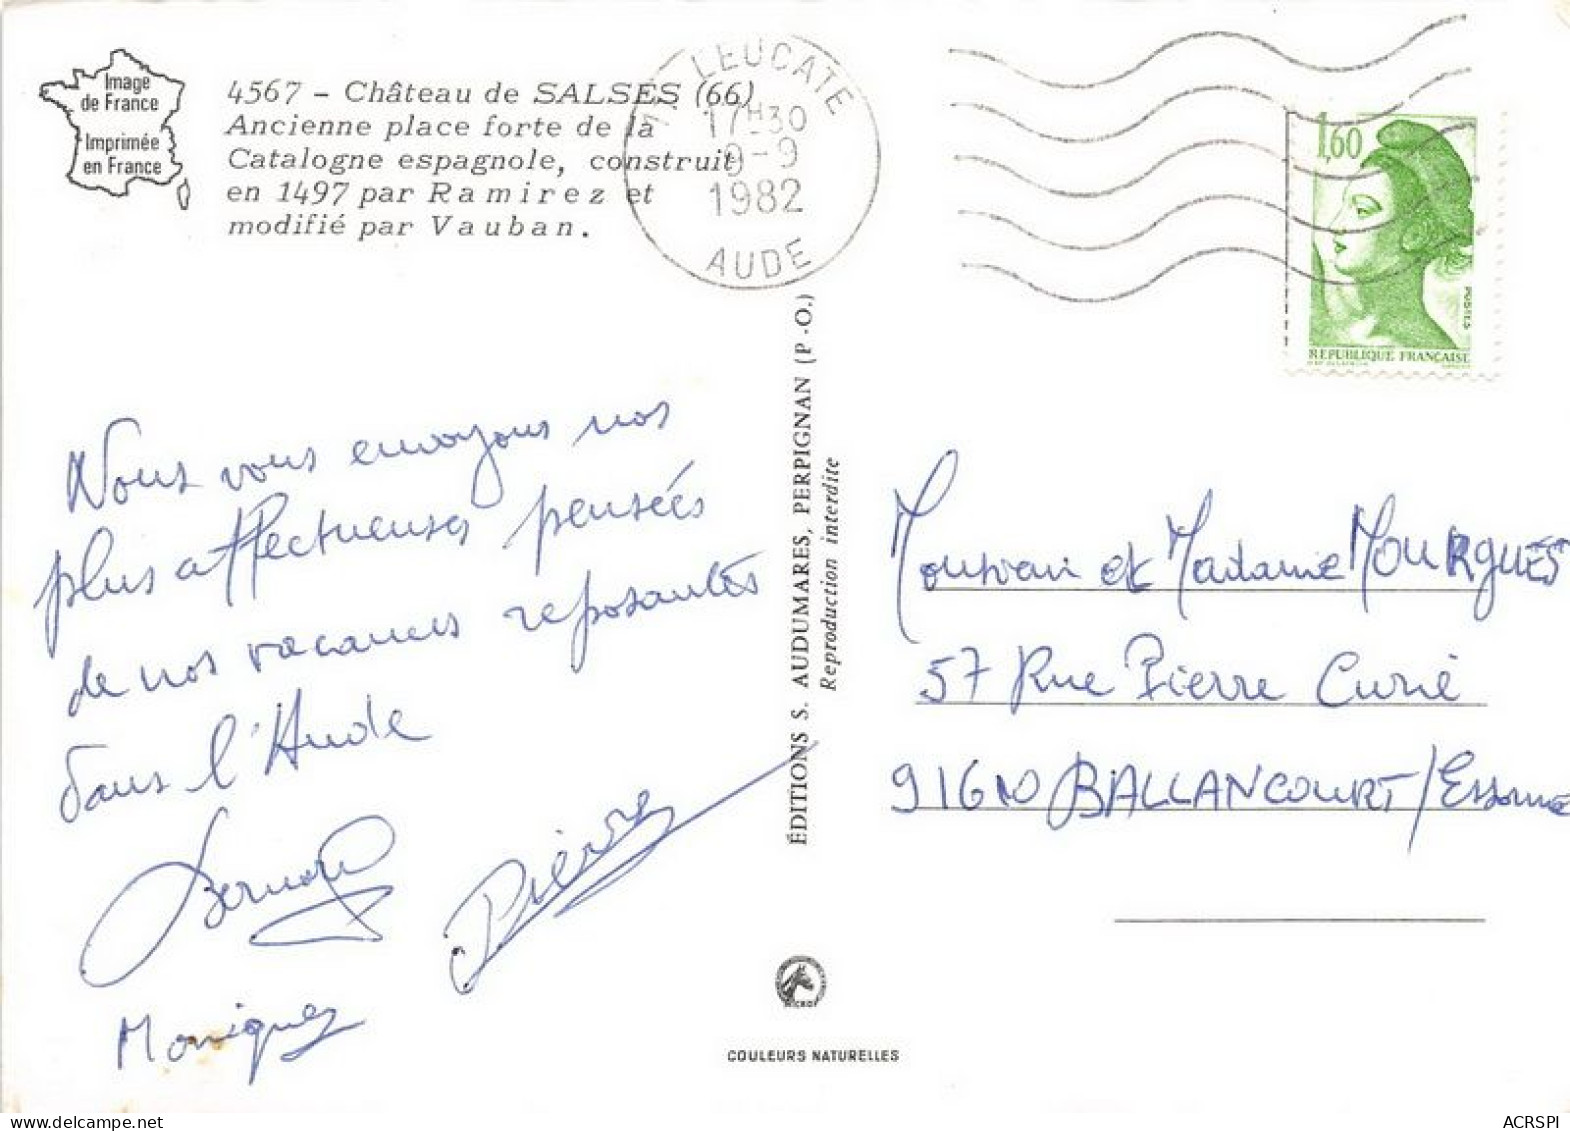 Image
de France
Imprimée
en France
4567 - Château de SALSES (66)
Ancienne place forte de la
Catalogne espagnole, construit
en 1497 par Ramirez et
modifié par Vauban.
LEUCATE
17H30
9-9
1982
AUDE
1,60
POSTES
REPUBLIQUE FRANÇAISE
Nous vous envoyons nos
plus affectueuses pensées
de nos vacances reposantes
dans l'Aude
Bernard
Pierre
Monique
ÉDITIONS S. AUDUMARES, PERPIGNAN (P.-O.)
Reproduction interdite
Monsieur et Madame MOURGUES
57 Rue Pierre Curie
91610 BALLANCOURT/Essonne
COULEURS NATURELLES
ACRSPI